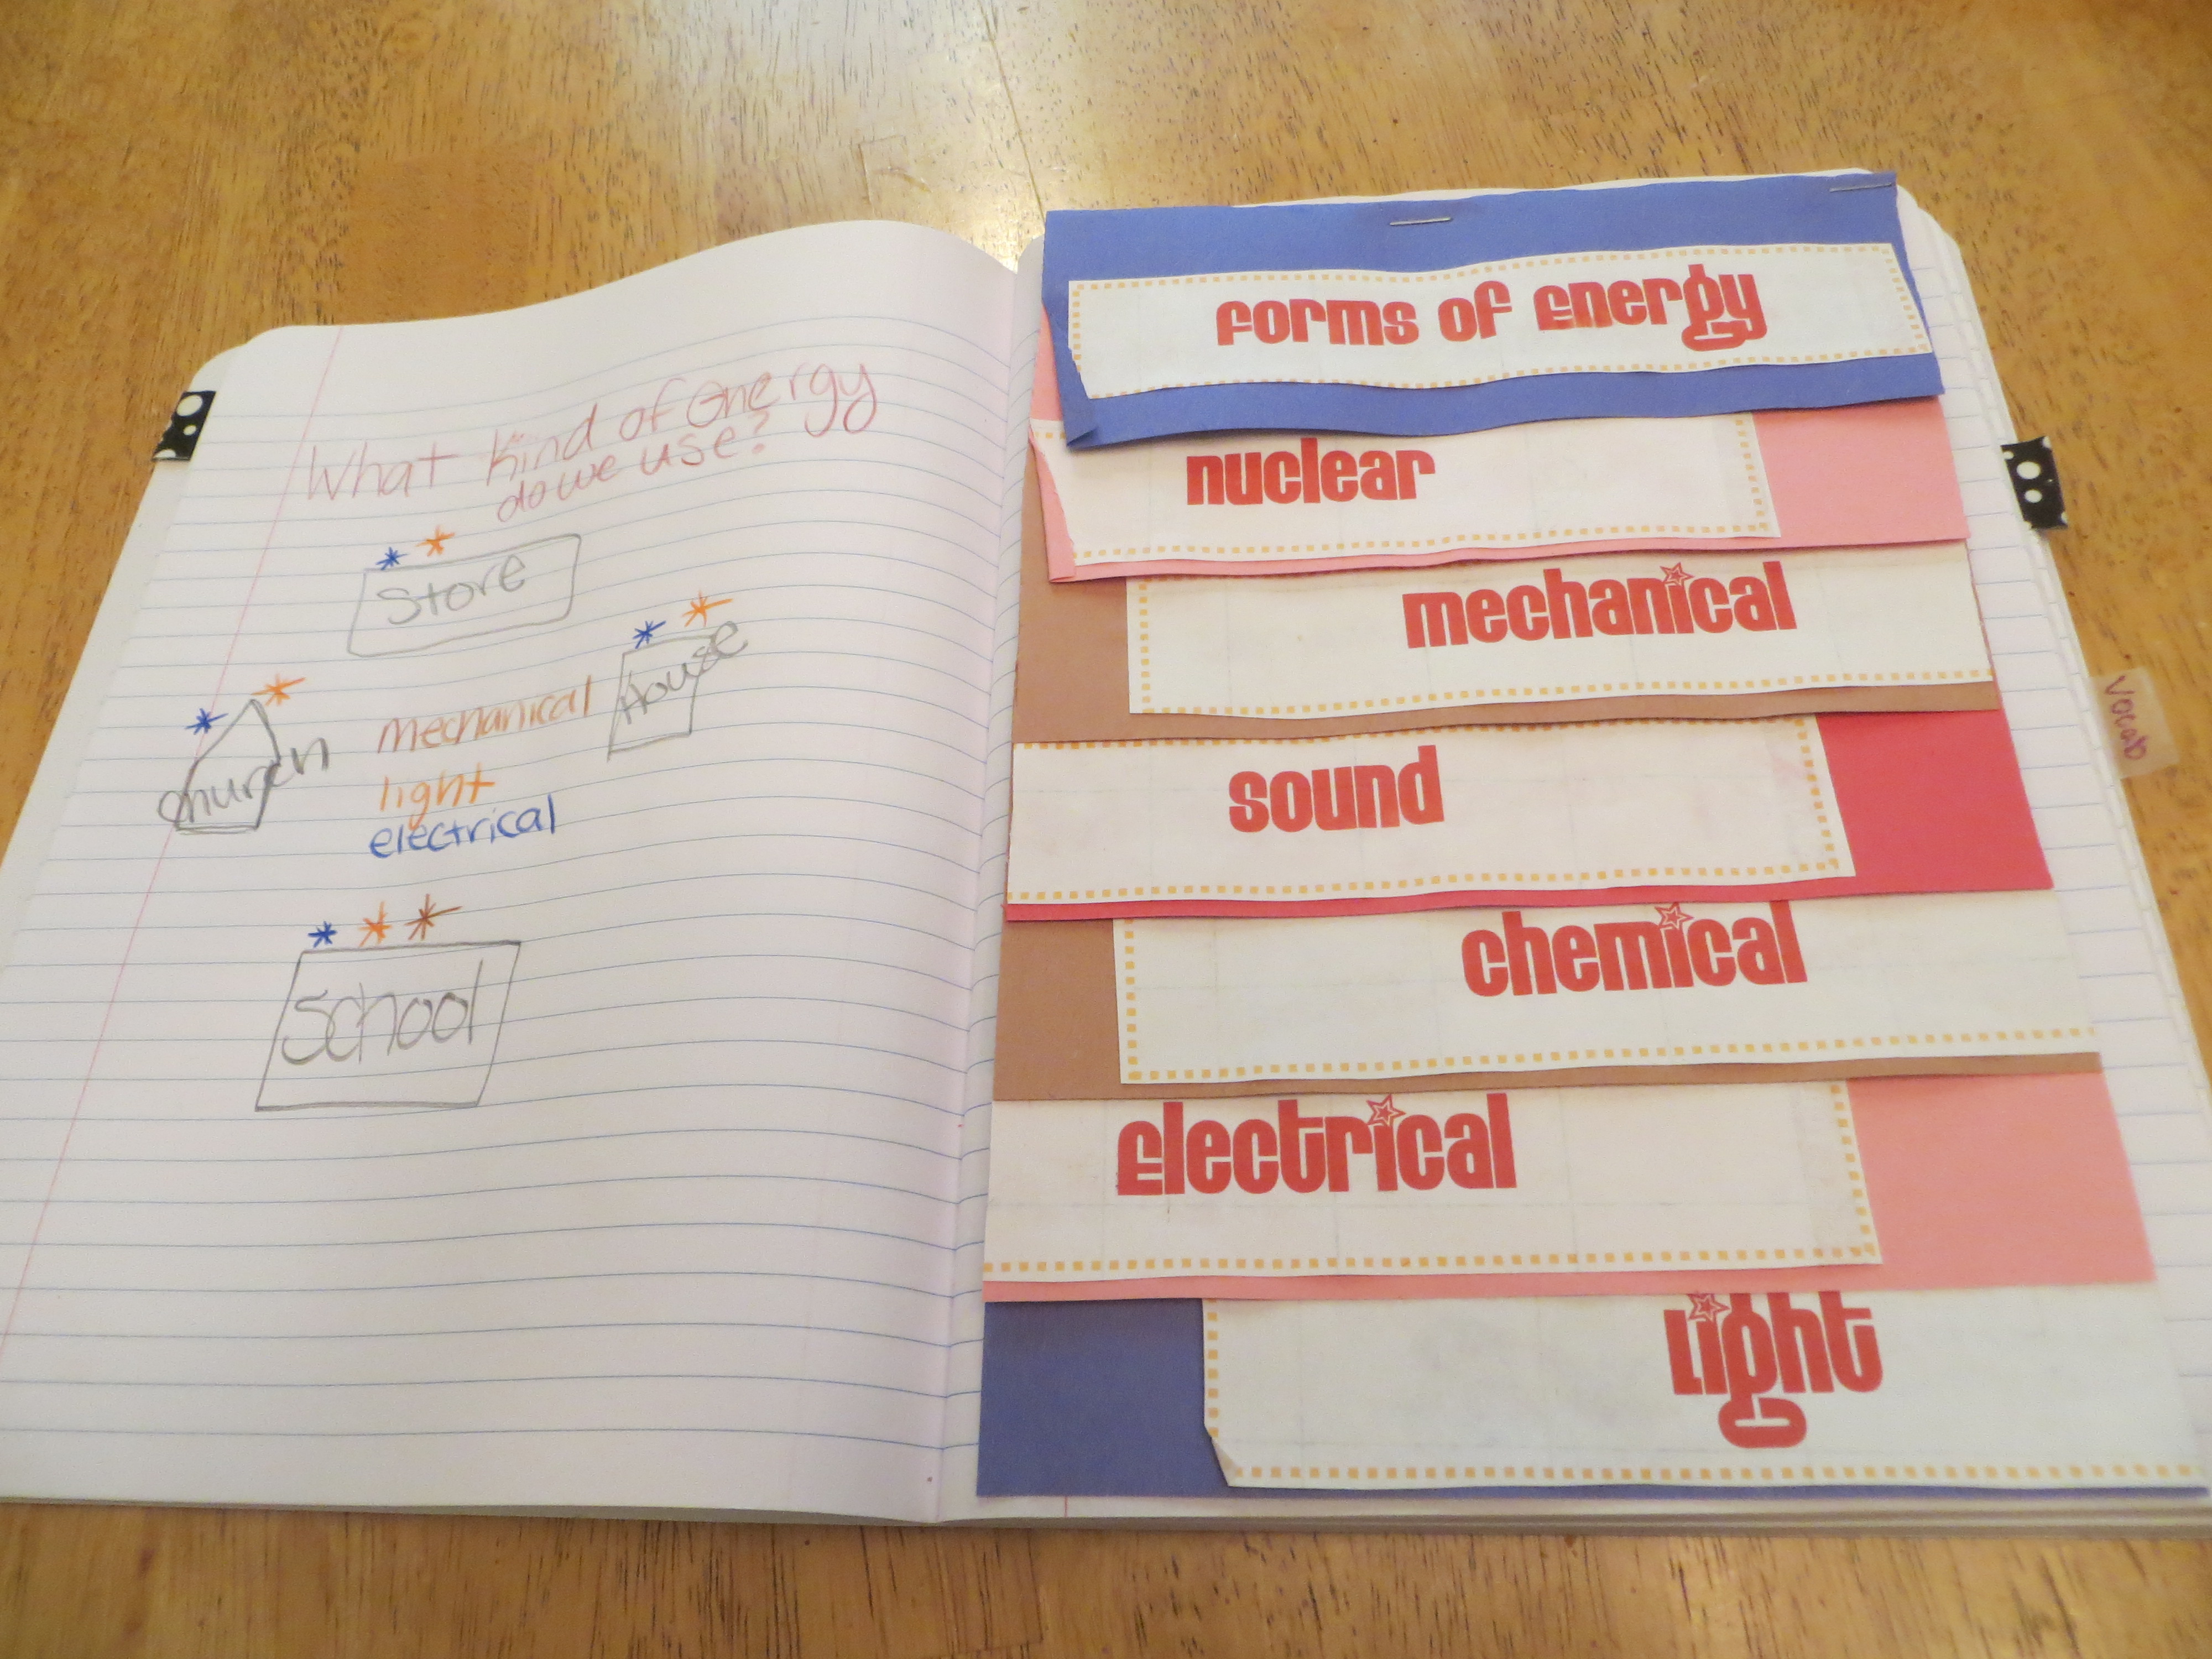 What kind of energy
do we use?
Store
House
Church
mechanical
light
electrical
School
forms of Energy
nuclear
mechanical
sound
chemical
Electrical
Light
Vocab